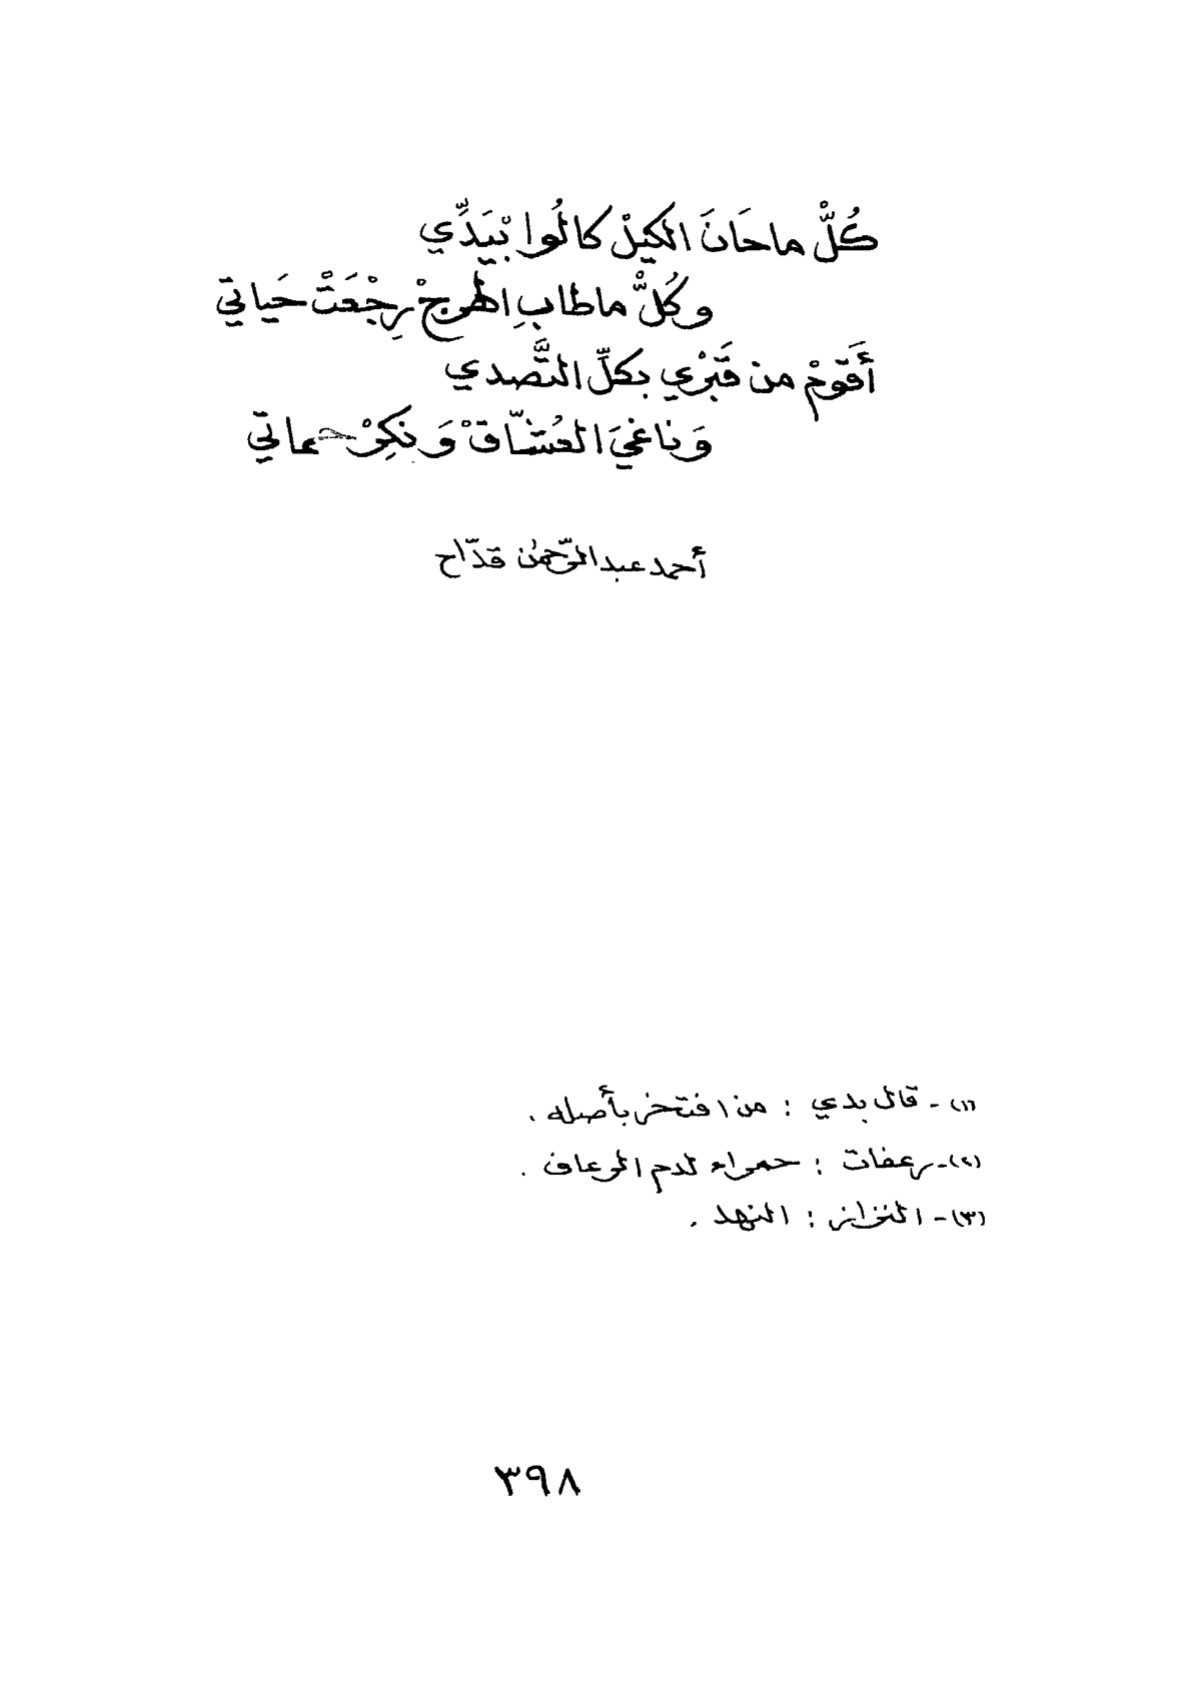 كُلّْ ماحَانَ الكيلْ كالُوا بْيَدِّي
وكُلّْ ماطابِ الهرجْ رِجْعَتْ حَياتي
أَقَومْ من قَبْري بكلِّ التَّصدي
وَناغيَ العُشّاقْ وَنكِرْ حماتي
أحمد عبدالرّحمٰن قدّاح
(١) - قال بدي : من افتخر بأصله .
(٢) - رعفات : حمراء لدم الرعاف .
(٣) - النخراز : النهد .
٣٩٨